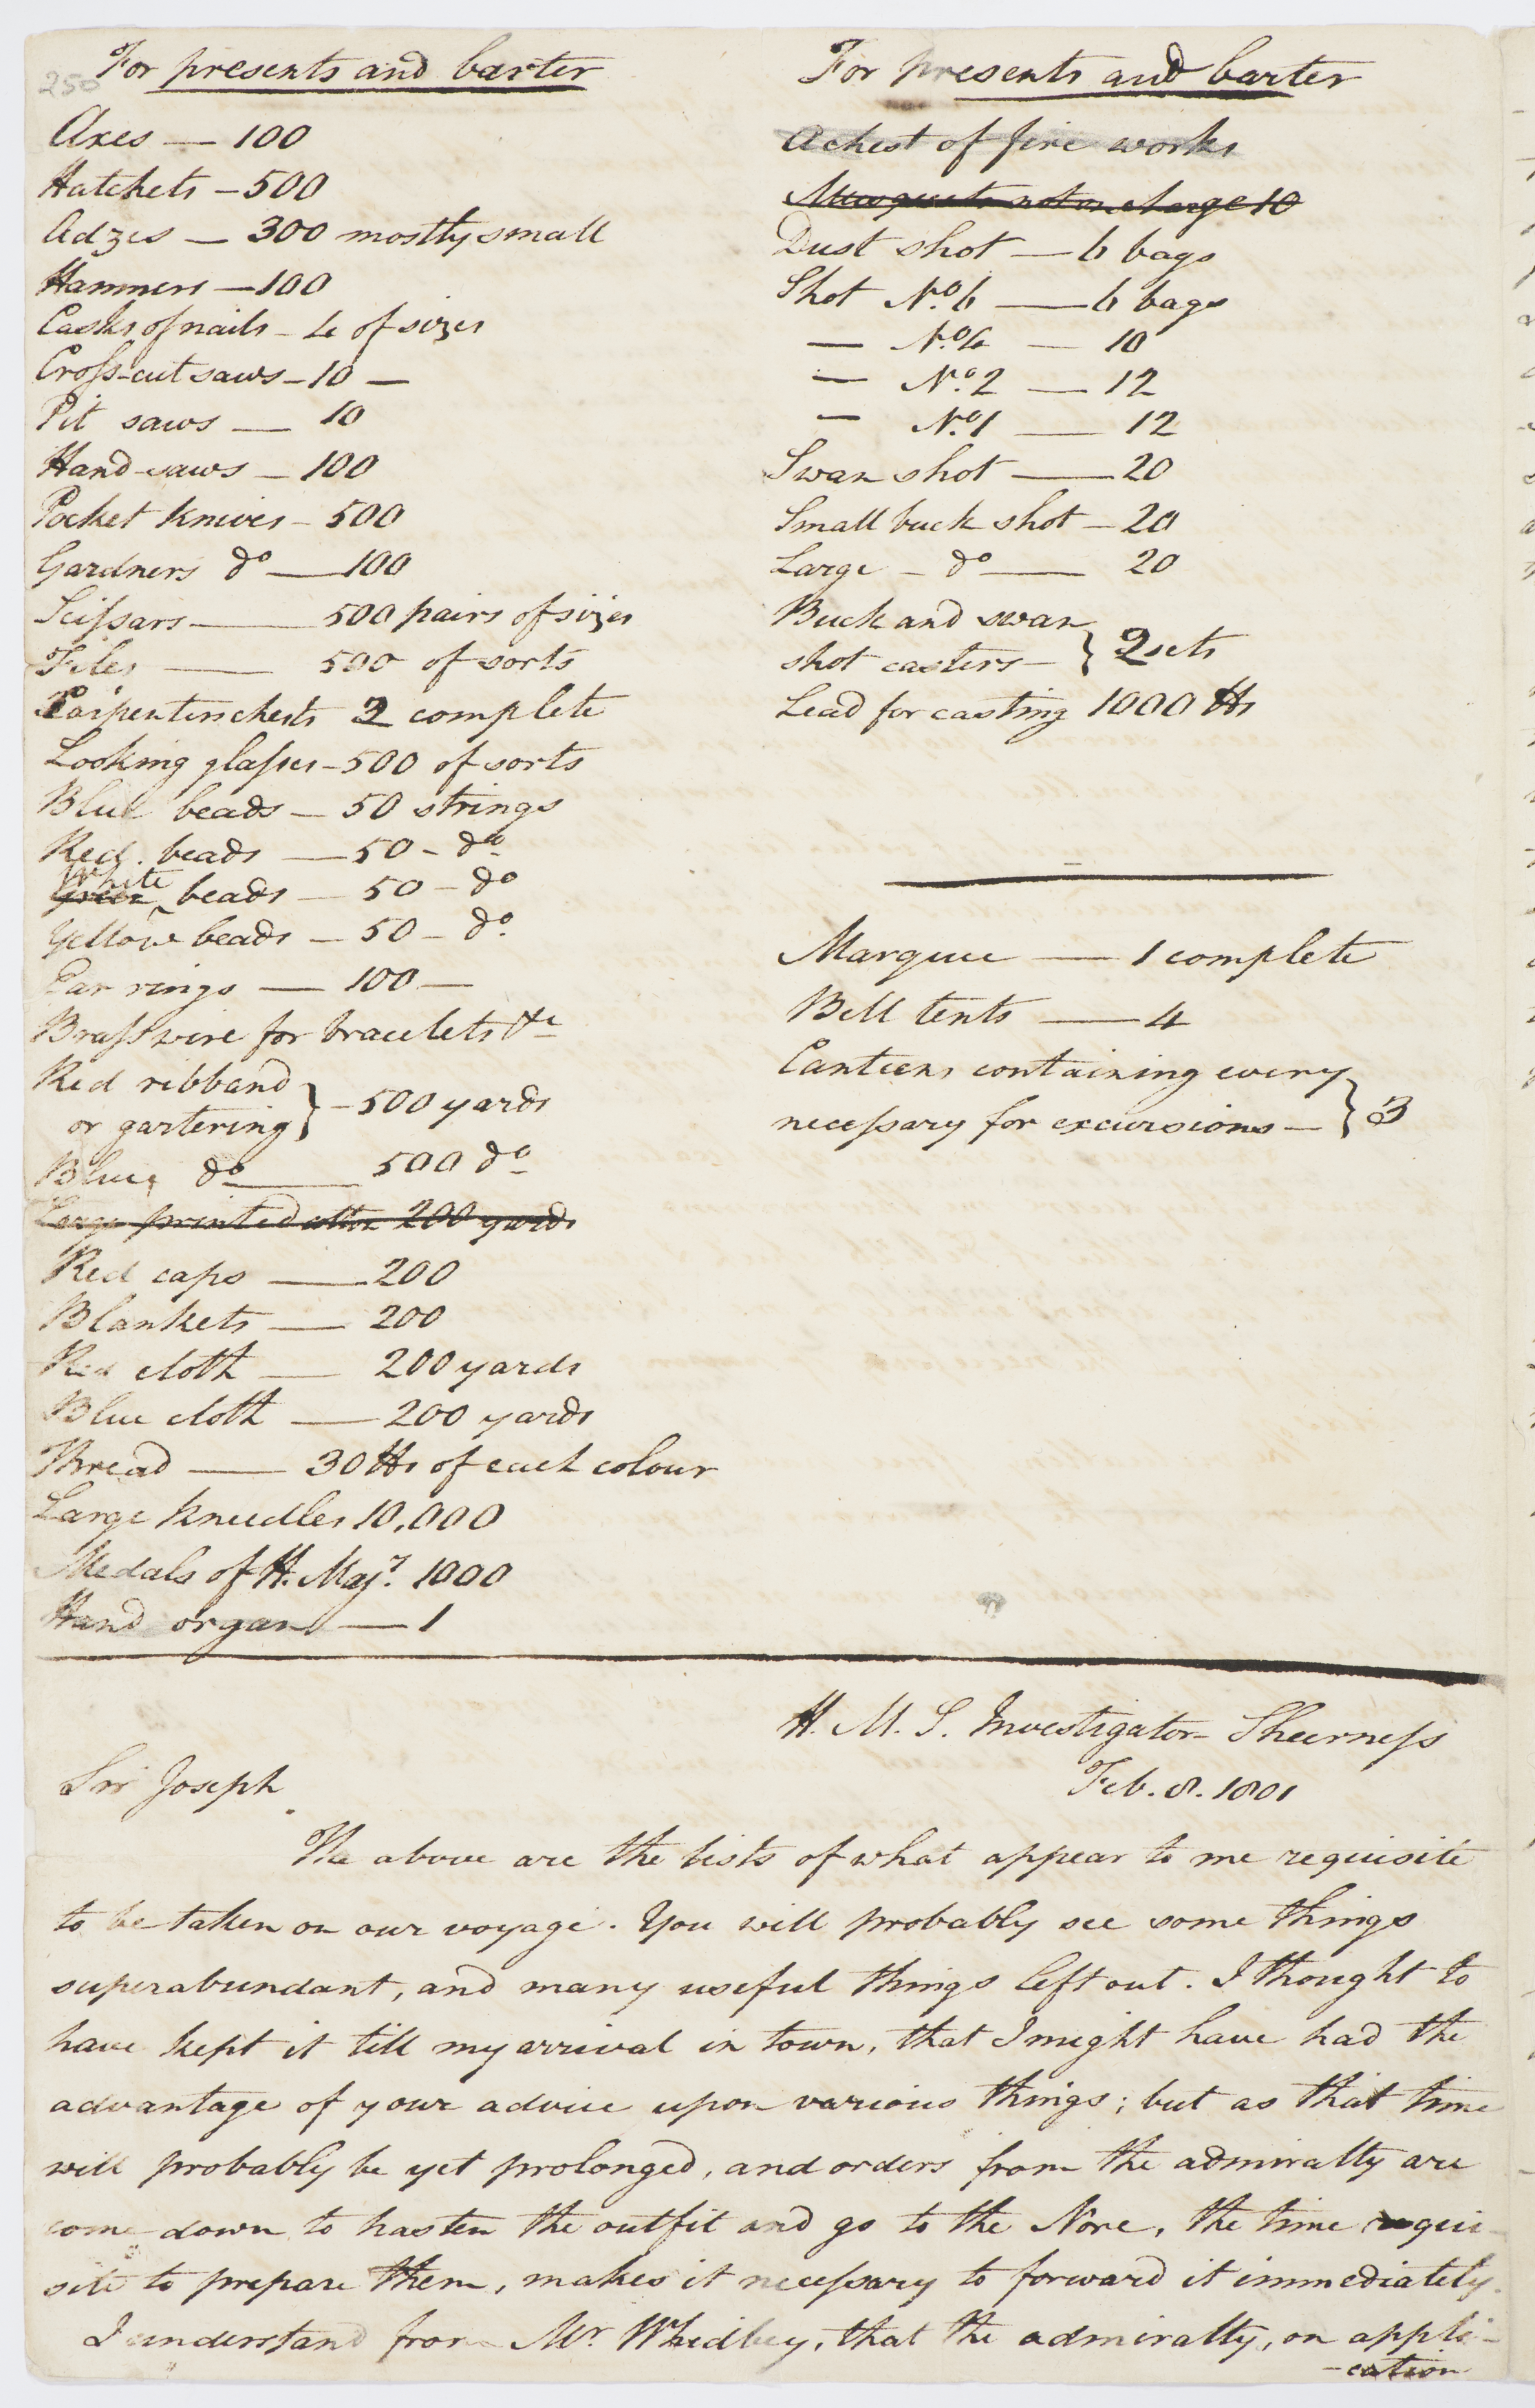 250
For presents and barter
Axes — 100
Hatchets — 500
Adzes — 300 mostly small
Hammers — 100
Casks of nails — 4 of sizes
Cross-cut saws — 10 —
Pit saws — 10
Hand-saws — 100
Pocket knives — 500
Gardners do — 100
Scissars — 500 pairs of sizes
Files — 500 of sorts
Carpenters chests 2 complete
Looking glasses — 500 of sorts
Blue beads — 50 strings
Red beads — 50 — do
White
Green beads — 50 — do
Yellow beads — 50 — do.
Ear rings — 100 —
Brass wire for bracelets &c
Red ribband
or gartering } — 500 yards
Blue, do — 500 do
Large printed cotton 200 yards
Red caps — 200
Blankets — 200
Red cloth — 200 yards
Blue cloth — 200 yards
Thread — 30 lbs of each colour
Large kneedles 10,000
Medals of H. Majy. 1000
Hand organ — 1
For presents and barter
A chest of fire works
Musquets not on charge 10
Dust shot — 6 bags
Shot No. 6 — 6 bags
— No. 4 — 10
— No. 2 — 12
— No. 1 — 12
Swan shot — 20
Small buck shot — 20
Large — do — 20
Buck and swan
shot casters — } 2 sets
Lead for casting 1000 lbs
Marquee — 1 complete
Bell tents — 4
Canteens containing every
necessary for excursions — } 3
H. M. S. Investigator — Sheerness
Feb. 8. 1801
Sir Joseph
The above are the lists of what appear to me requisite
to be taken on our voyage. You will probably see some things
superabundant, and many useful things left out. I thought to
have kept it till my arrival in town, that I might have had the
advantage of your advice upon various things; but as that time
will probably be yet prolonged, and orders from the admiralty are
come down to hasten the outfit and go to the Nore, the time requi-
site to prepare them, makes it necessary to forward it immediately.
I understand from Mr. Whidbey, that the admiralty, on appli-
-cation